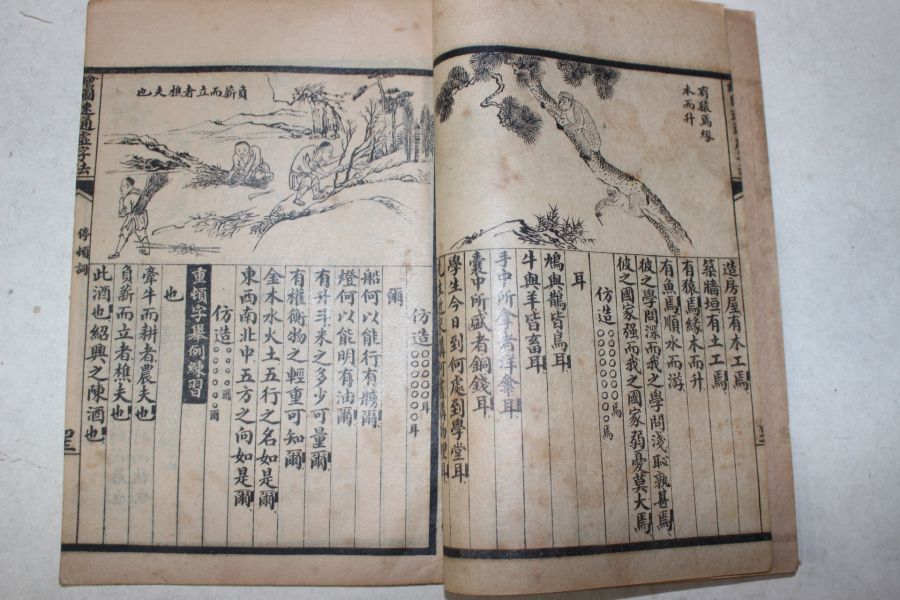 有猿焉緣
木而升
造房屋有木工焉
築墻垣有土工焉
有猿焉緣木而升
有魚焉順水而游
彼之學問深而我之學問淺恥孰甚焉
彼之國家强而我之國家弱憂莫大焉
仿造○○○○○○焉
○○○○○○焉
耳
鳩與鵲皆鳥耳
牛與羊皆畜耳
手中所拿者洋傘耳
囊中所盛者銅錢耳
學生今日到何處到學堂耳
仿造○○○○○○耳
○○○○○○耳
爾
船何以能行有櫓爾
燈何以能明有油爾
有升斗米之多少可量爾
有權衡物之輕重可知爾
金木水火土五行之名如是爾
東西南北中五方之向如是爾
仿造○○○○○爾
○○○○○爾
重頓字舉例練習
也
牽牛而耕者農夫也
負薪而立者樵夫也
此酒也紹興之陳酒也
負薪而立者樵夫也
繪圖速通虛字法
停頓詞